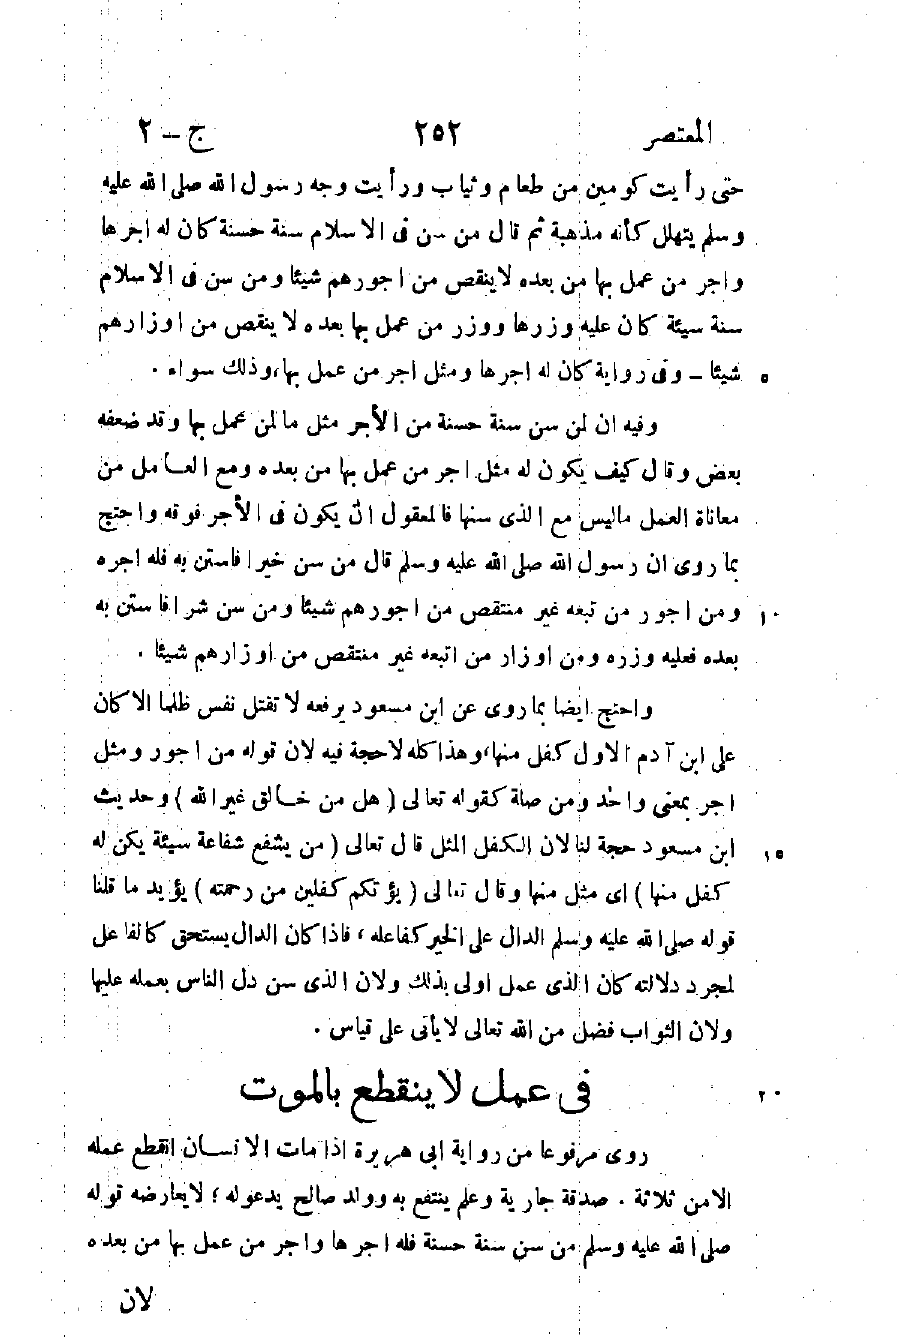 المعتصر ٢٥٢ ج – ٢
حتى رأيت كومين من طعام وثياب ورأيت وجه رسول الله صلى الله عليه
وسلم يتهلل كأنه مذهبة ثم قال من سن فى الاسلام سنة حسنة كان له اجرها
واجر من عمل بها من بعده لا ينقص من اجورهم شيئا ومن سن فى الاسلام
سنة سيئة كان عليه وزرها ووزر من عمل بها بعده لا ينقص من اوزارهم
٥ شيئا – وفى رواية كان له اجرها ومثل اجر من عمل بها،وذلك سواء .
وفيه ان لمن سن سنة حسنة من الأجر مثل ما لمن عمل بها وقد ضعفه
بعض وقال كيف يكون له مثل اجر من عمل بها من بعده ومع العامل من
معاناة العمل ماليس مع الذى سنها فالمعقول ان يكون فى الأجر فوقه واحتج
بما روى ان رسول الله صلى الله عليه وسلم قال من سن خيرا فاستن به فله اجره
١٠ ومن اجور من تبعه غير منتقص من اجورهم شيئا ومن سن شرا فاستن به
بعده فعليه وزره ومن اوزار من اتبعه غير منتقص من اوزارهم شيئا .
واحتج ايضا بما روى عن ابن مسعود يرفعه لا تقتل نفس ظلما الا كان
على ابن آدم الاول كفل منها،وهذا كله لا حجة فيه لان قوله من اجور ومثل
اجر بمعنى واحد ومن صلة كقوله تعالى ( هل من خالق غير الله ) وحديث
١٥ ابن مسعود حجة لنا لان الكفل المثل قال تعالى ( من يشفع شفاعة سيئة يكن له
كفل منها ) اى مثل منها وقال تعالى ( يؤتكم كفلين من رحمته ) يؤيد ما قلنا
قوله صلى الله عليه وسلم الدال على الخير كفاعله ، فاذا كان الدال يستحق كالفاعل
لمجرد دلالته كان الذى عمل اولى بذلك ولان الذى سن دل الناس بعمله عليها
ولان الثواب فضل من الله تعالى لا يأتى على قياس .
٢٠ فى عمل لا ينقطع بالموت
روى مرفوعا من رواية ابى هريرة اذا مات الانسان انقطع عمله
الا من ثلاثة . صدقة جارية وعلم ينتفع به وولد صالح يدعو له ؛ لا يعارضه قوله
صلى الله عليه وسلم من سن سنة حسنة فله اجرها واجر من عمل بها من بعده
لان